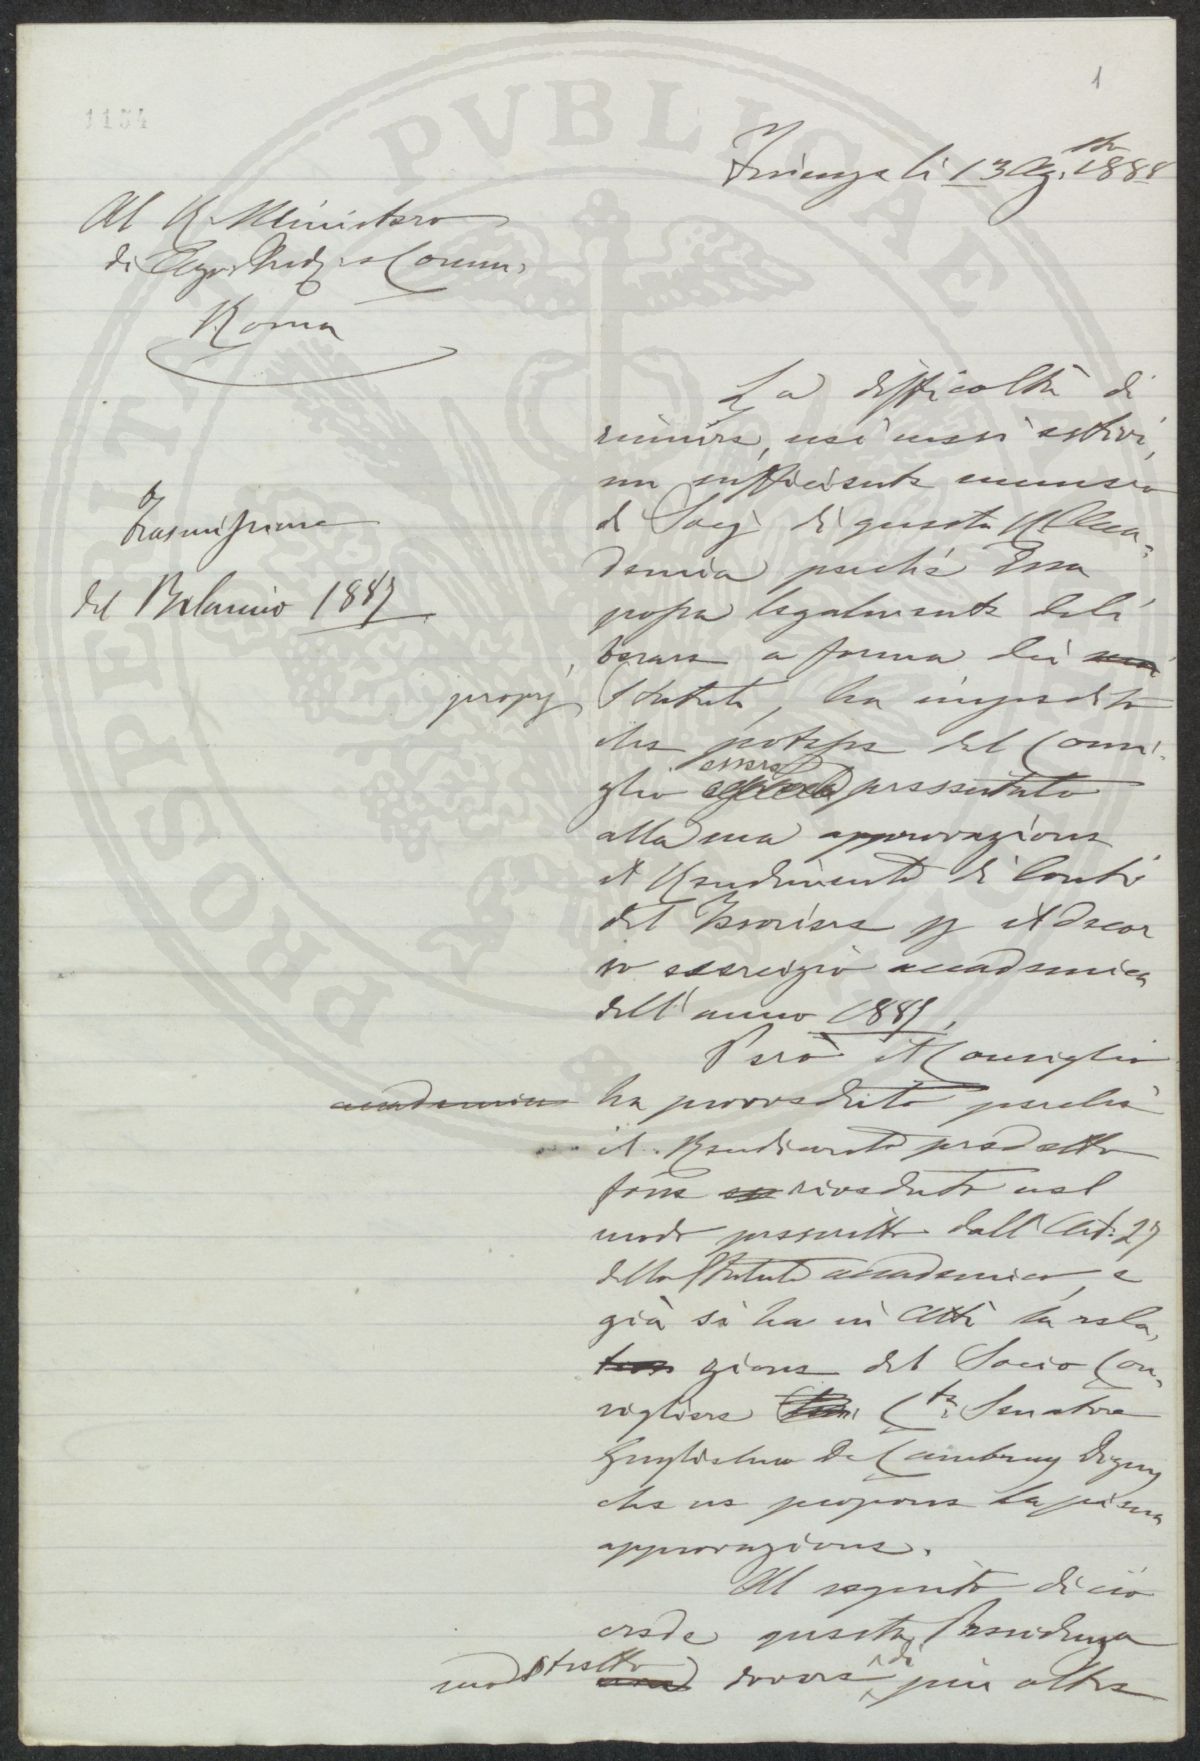 1
1154
Firenze li 13 Ag.sto 1888
Al R. Ministero
di Agr. Ind. e Comm.
Roma
Trasmissione
del Bilancio 1887
La difficoltà di
riunire, nei mesi estivi,
un sufficiente numero
di Socj di questa R. Acca-
demia perché Essa
possa legalmente deli
berare a forma dei
proprj Statuti, ha impedito
che potesse dal Consi-
glio essere presentato
alla sua approvazione
il Rendimento di Conti
del Tesoriere pj il decor
so esercizio accademico
dell'anno 1887.
Però il Consiglio
accademico ha provveduto perché
il Rendimento predetto
fosse riveduto nel
modo prescritto dall'Art. 27
dello Statuto accademico, e
già si ha in Atti la rela-
zione del Socio Con-
sigliere C.te Senatore
Guglielmo De Cambray Digny
che ne propone la piena
approvazione.
Al seguito di ciò
crede questa Presidenza
stretto dovere di più oltre
PVBLICAE
PROSPERITATI